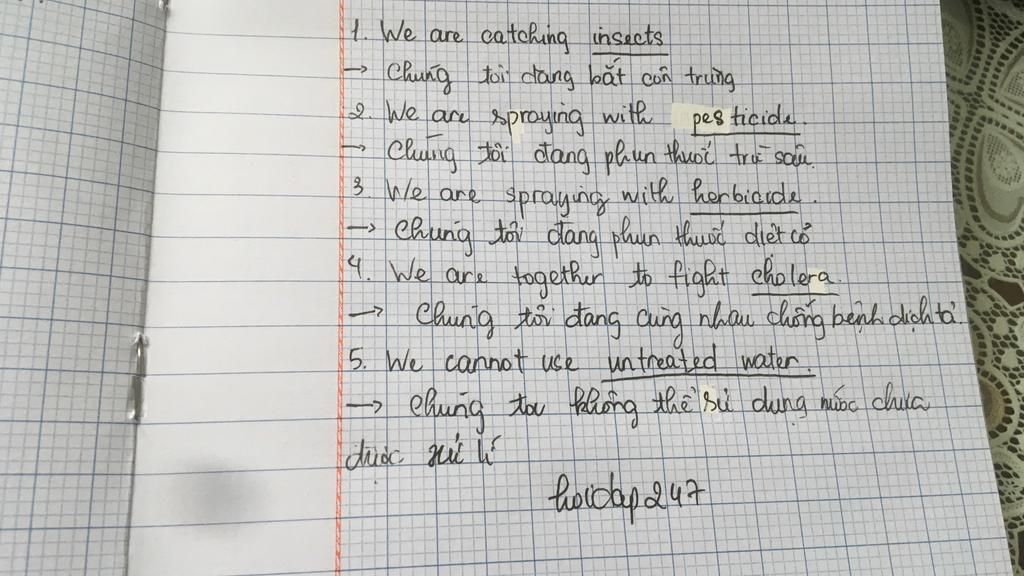 1. We are catching insects
→ Chúng tôi đang bắt côn trùng
2. We are spraying with pesticide.
→ Chúng tôi đang phun thuốc trừ sâu.
3. We are spraying with herbicide.
→ Chúng tôi đang phun thuốc diệt cỏ
4. We are together to fight cholera.
→ Chúng tôi đang cùng nhau chống bệnh dịch tả.
5. We cannot use untreated water.
→ Chúng tôi không thể sử dụng nước chưa
được xử lí
hoidap247